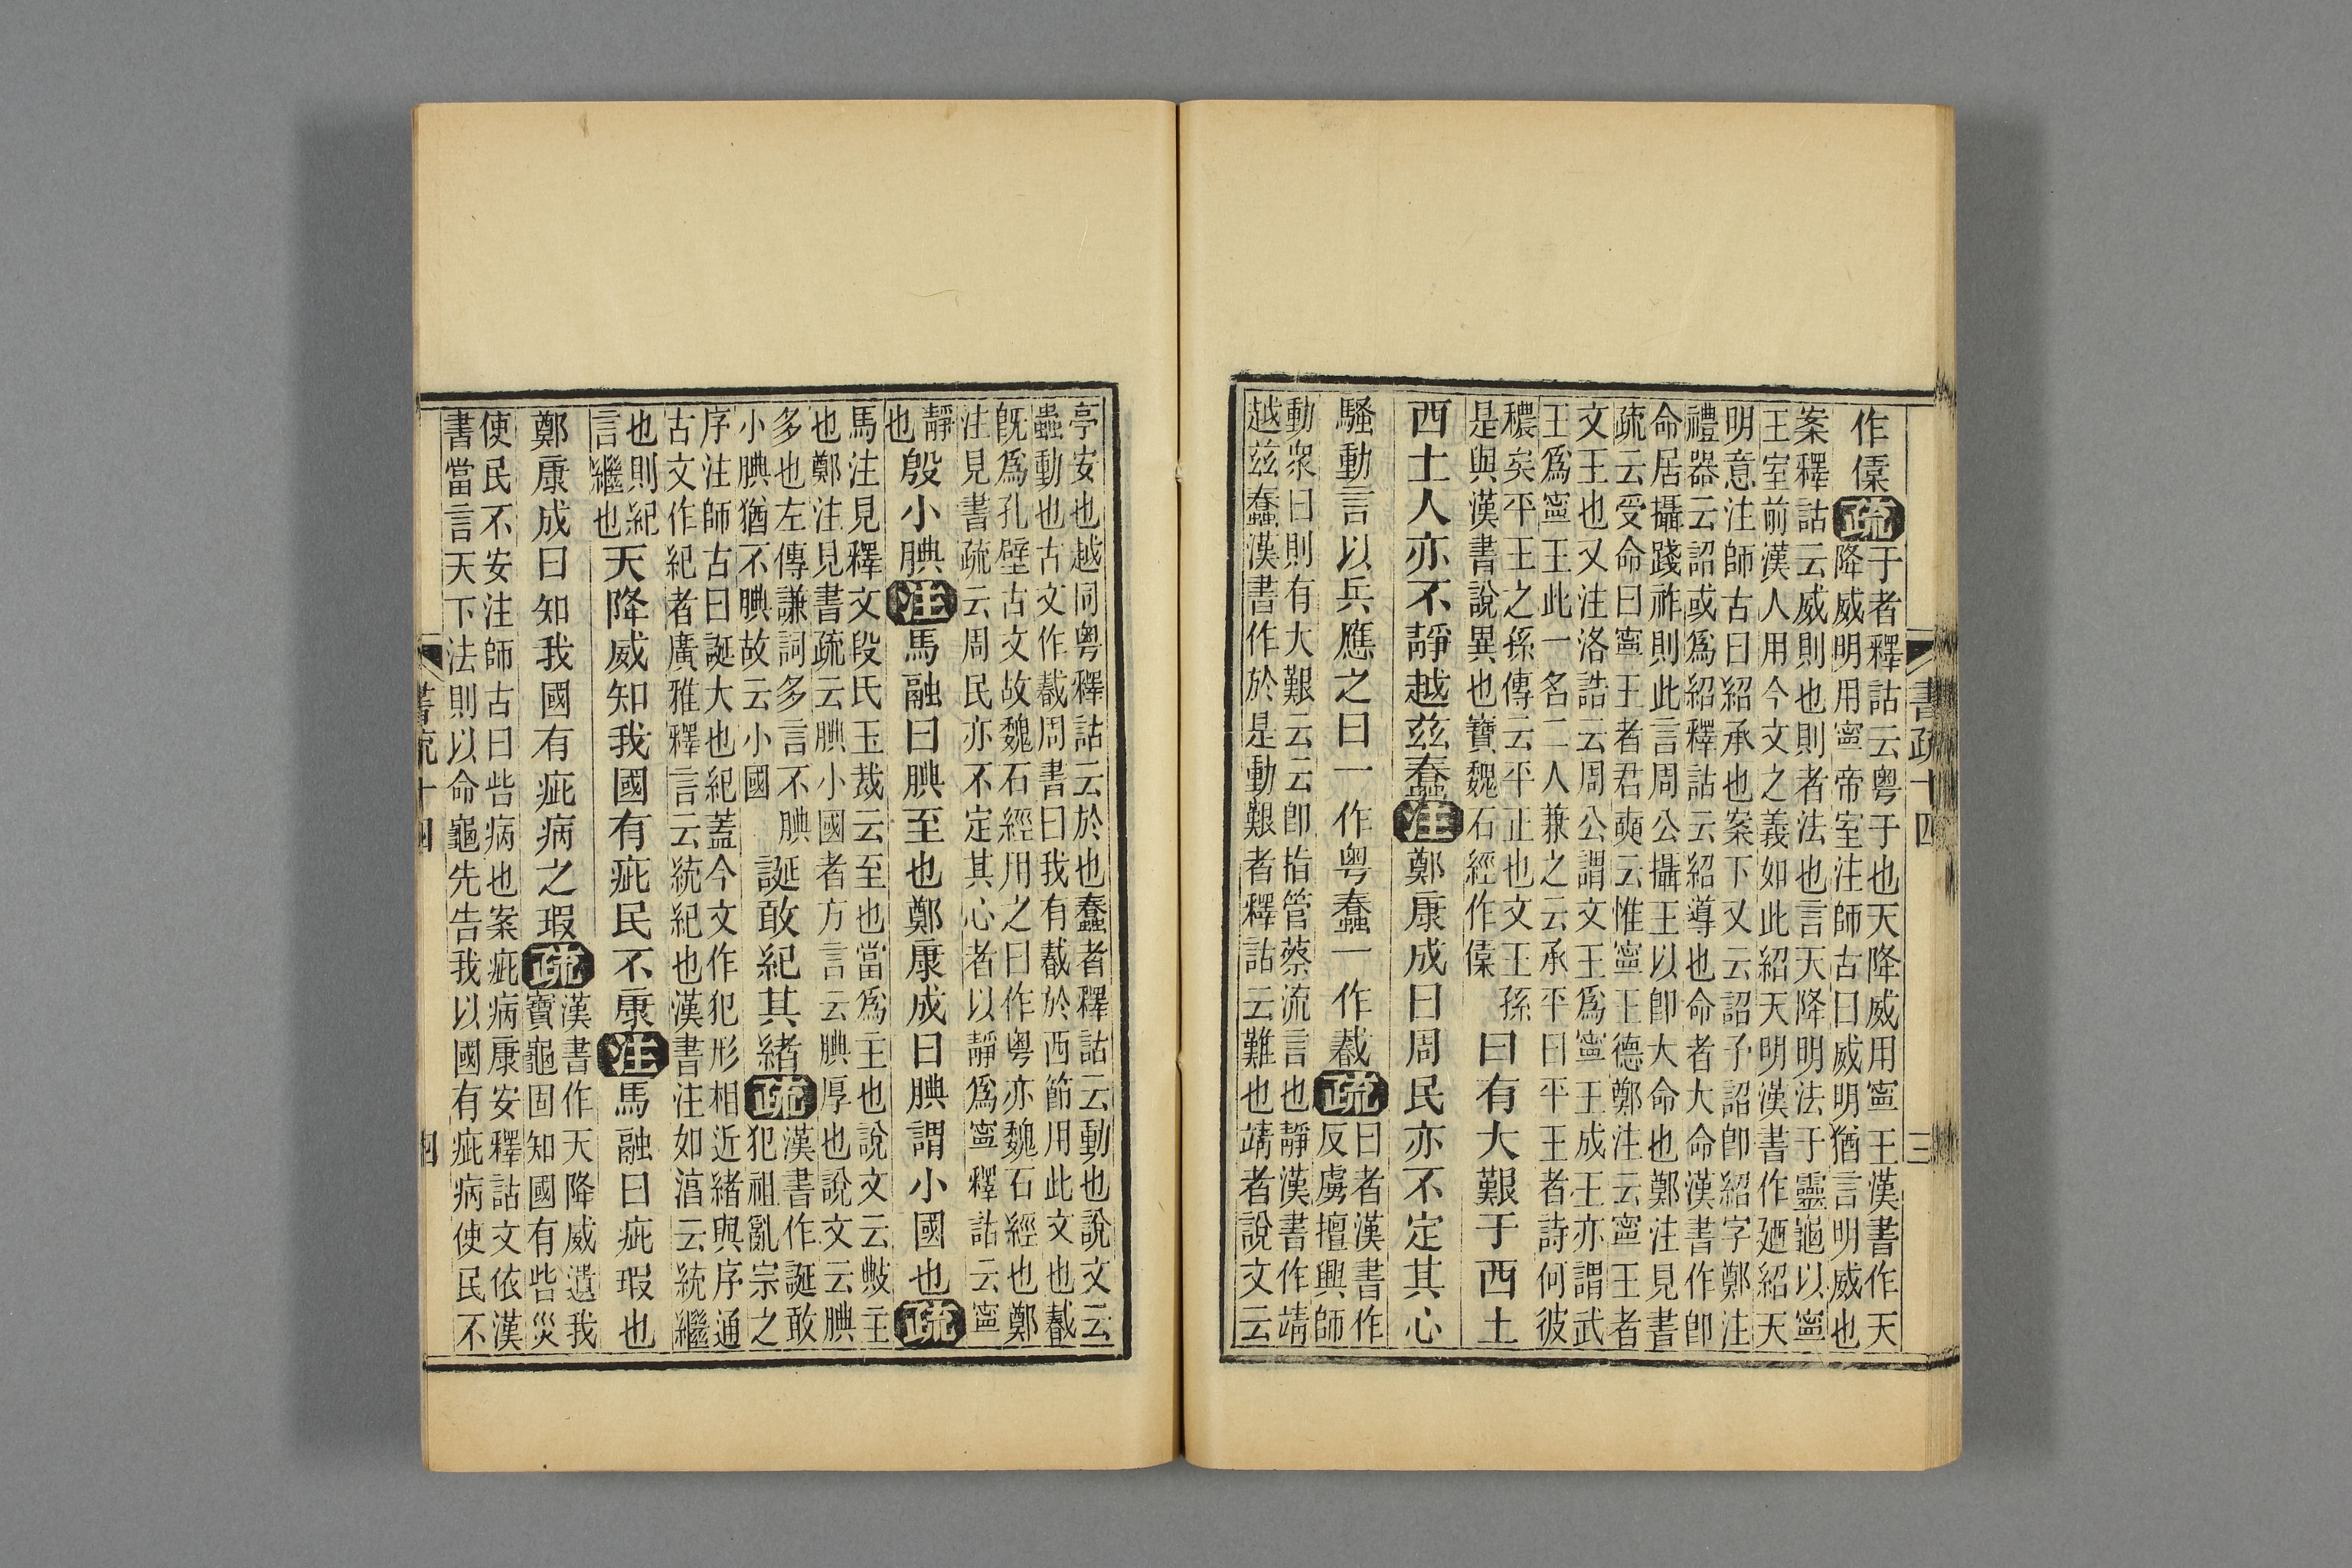 書疏十四
三
作僡疏
于者釋詁云粤于也天降威用寧王漢書作天
降威明用寧帝室注師古曰威明猶言明威也
案釋詁云威則也則者法也言天降明法于靈龜以寧
王室前漢人用今文之義如此紹天明漢書作廼紹天
明意注師古曰紹承也案下文云詔予詔卽紹字鄭注
禮器云詔或爲紹釋詁云紹導也命者大命漢書作卽
命居攝踐祚則此言周公攝王以卽大命也鄭注見書
疏云受命曰寧王者君奭云惟寧王德鄭注云寧王者
文王也又注洛誥云周公謂文王爲寧王成王亦謂武
王爲寧王此一名二人兼之云承平曰平王者詩何彼
穠矣平王之孫傳云平正也文王孫
是與漢書說異也寶魏石經作僡
曰有大艱于西土
西土人亦不靜越兹蠢注鄭康成曰周民亦不定其心
騷動言以兵應之曰一作粤蠢一作𢧢疏
曰者漢書作
反虜擅興師
動衆曰則有大艱云云卽指管蔡流言也靜漢書作靖
越兹蠢漢書作於是動艱者釋詁云難也靖者說文云
亭安也越同粤釋詁云於也蠢者釋詁云動也說文云
蟲動也古文作𢧢周書曰我有𢧢於西節用此文也𢧢
旣爲孔壁古文故魏石經用之曰作粤亦魏石經也鄭
注見書疏云周民亦不定其心者以靜爲寧釋詁云寧
靜
也
殷小腆注馬融曰腆至也鄭康成曰腆謂小國也疏
馬注見釋文段氏玉裁云至也當爲主也說文云敟主
也鄭注見書疏云腆小國者方言云腆厚也說文云腆
多也左傳謙詞多言不腆
小腆猶不腆故云小國
誕敢紀其緒疏
漢書作誕敢
犯祖亂宗之
序注師古曰誕大也紀蓋今文作犯形相近緒與序通
古文作紀者廣雅釋言云統紀也漢書注如湻云統繼
也則紀
言繼也
天降威知我國有疵民不康注馬融曰疵瑕也
鄭康成曰知我國有疵病之瑕疏
漢書作天降威遺我
寶龜固知國有呰災
使民不安注師古曰呰病也案疵病康安釋詁文依漢
書當言天下法則以命龜先告我以國有疵病使民不
書疏十四
四